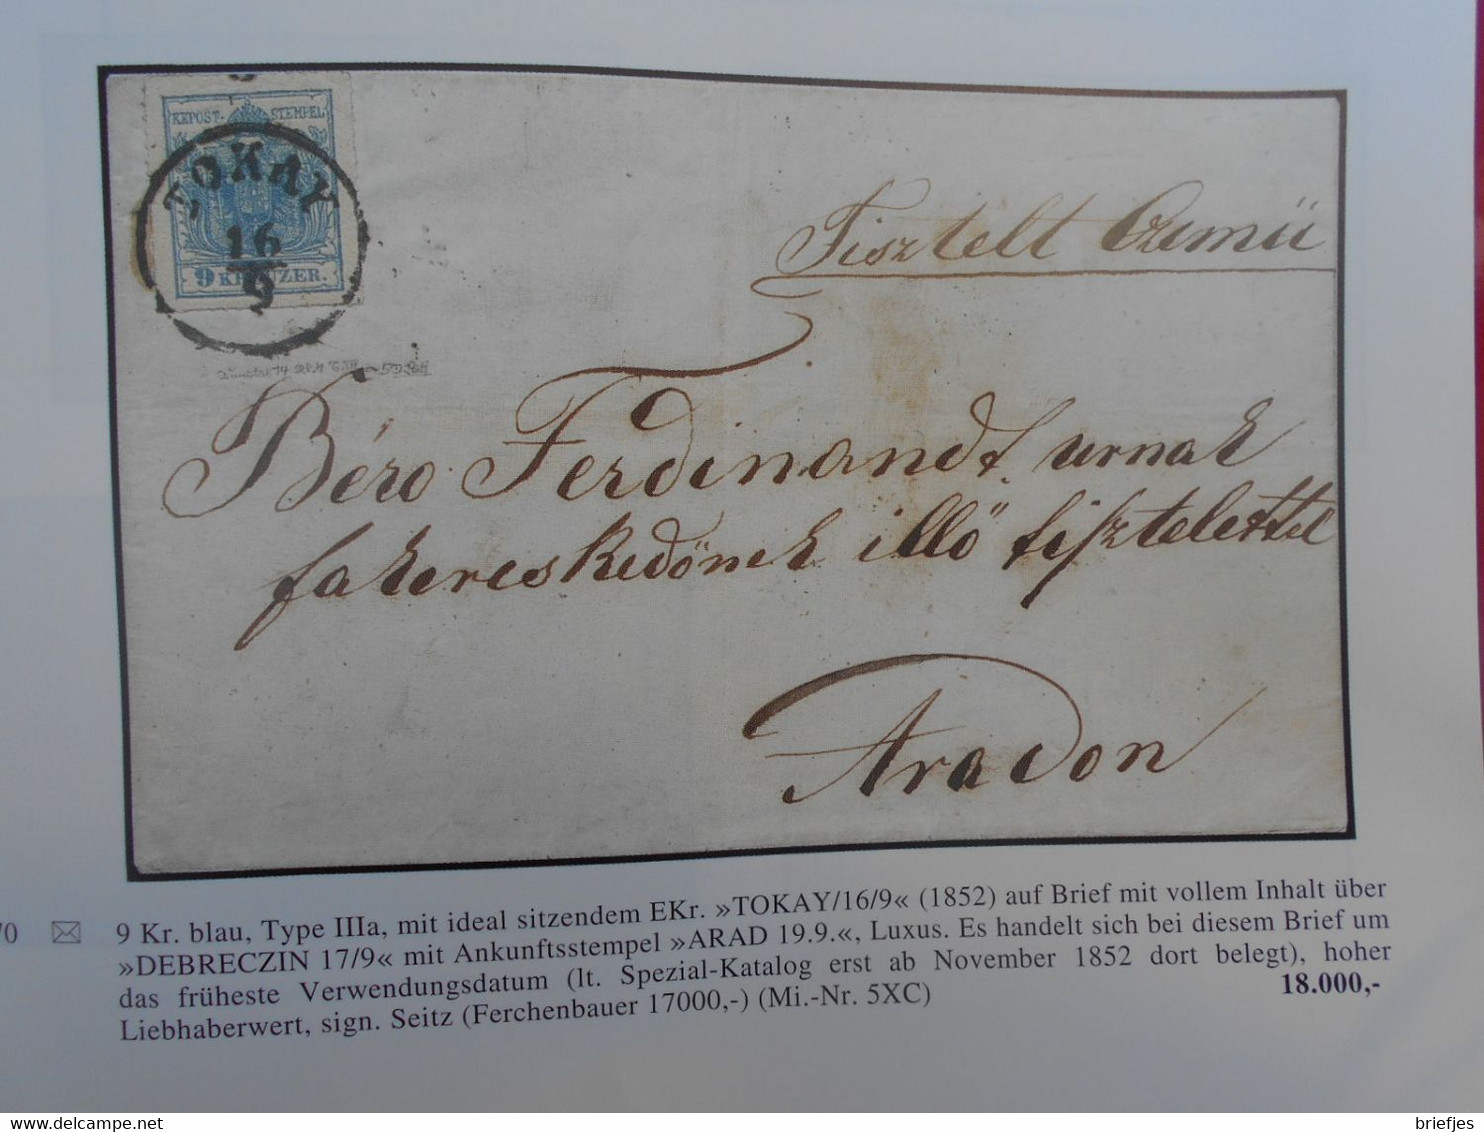 KKPOST-STEMPEL
TOKAY
16
9
9 KREUZER.
Tisztelt Czimü
Béro Ferdinand urnak
fakereskedönek illö tisztelettel
Aradon
70 9 Kr. blau, Type IIIa, mit ideal sitzendem EKr. »TOKAY/16/9« (1852) auf Brief mit vollem Inhalt über
»DEBRECZIN 17/9« mit Ankunftsstempel »ARAD 19.9.«, Luxus. Es handelt sich bei diesem Brief um
das früheste Verwendungsdatum (lt. Spezial-Katalog erst ab November 1852 dort belegt), hoher
Liebhaberwert, sign. Seitz (Ferchenbauer 17000,-) (Mi.-Nr. 5XC) 18.000,-
delcampe.net
briefjes